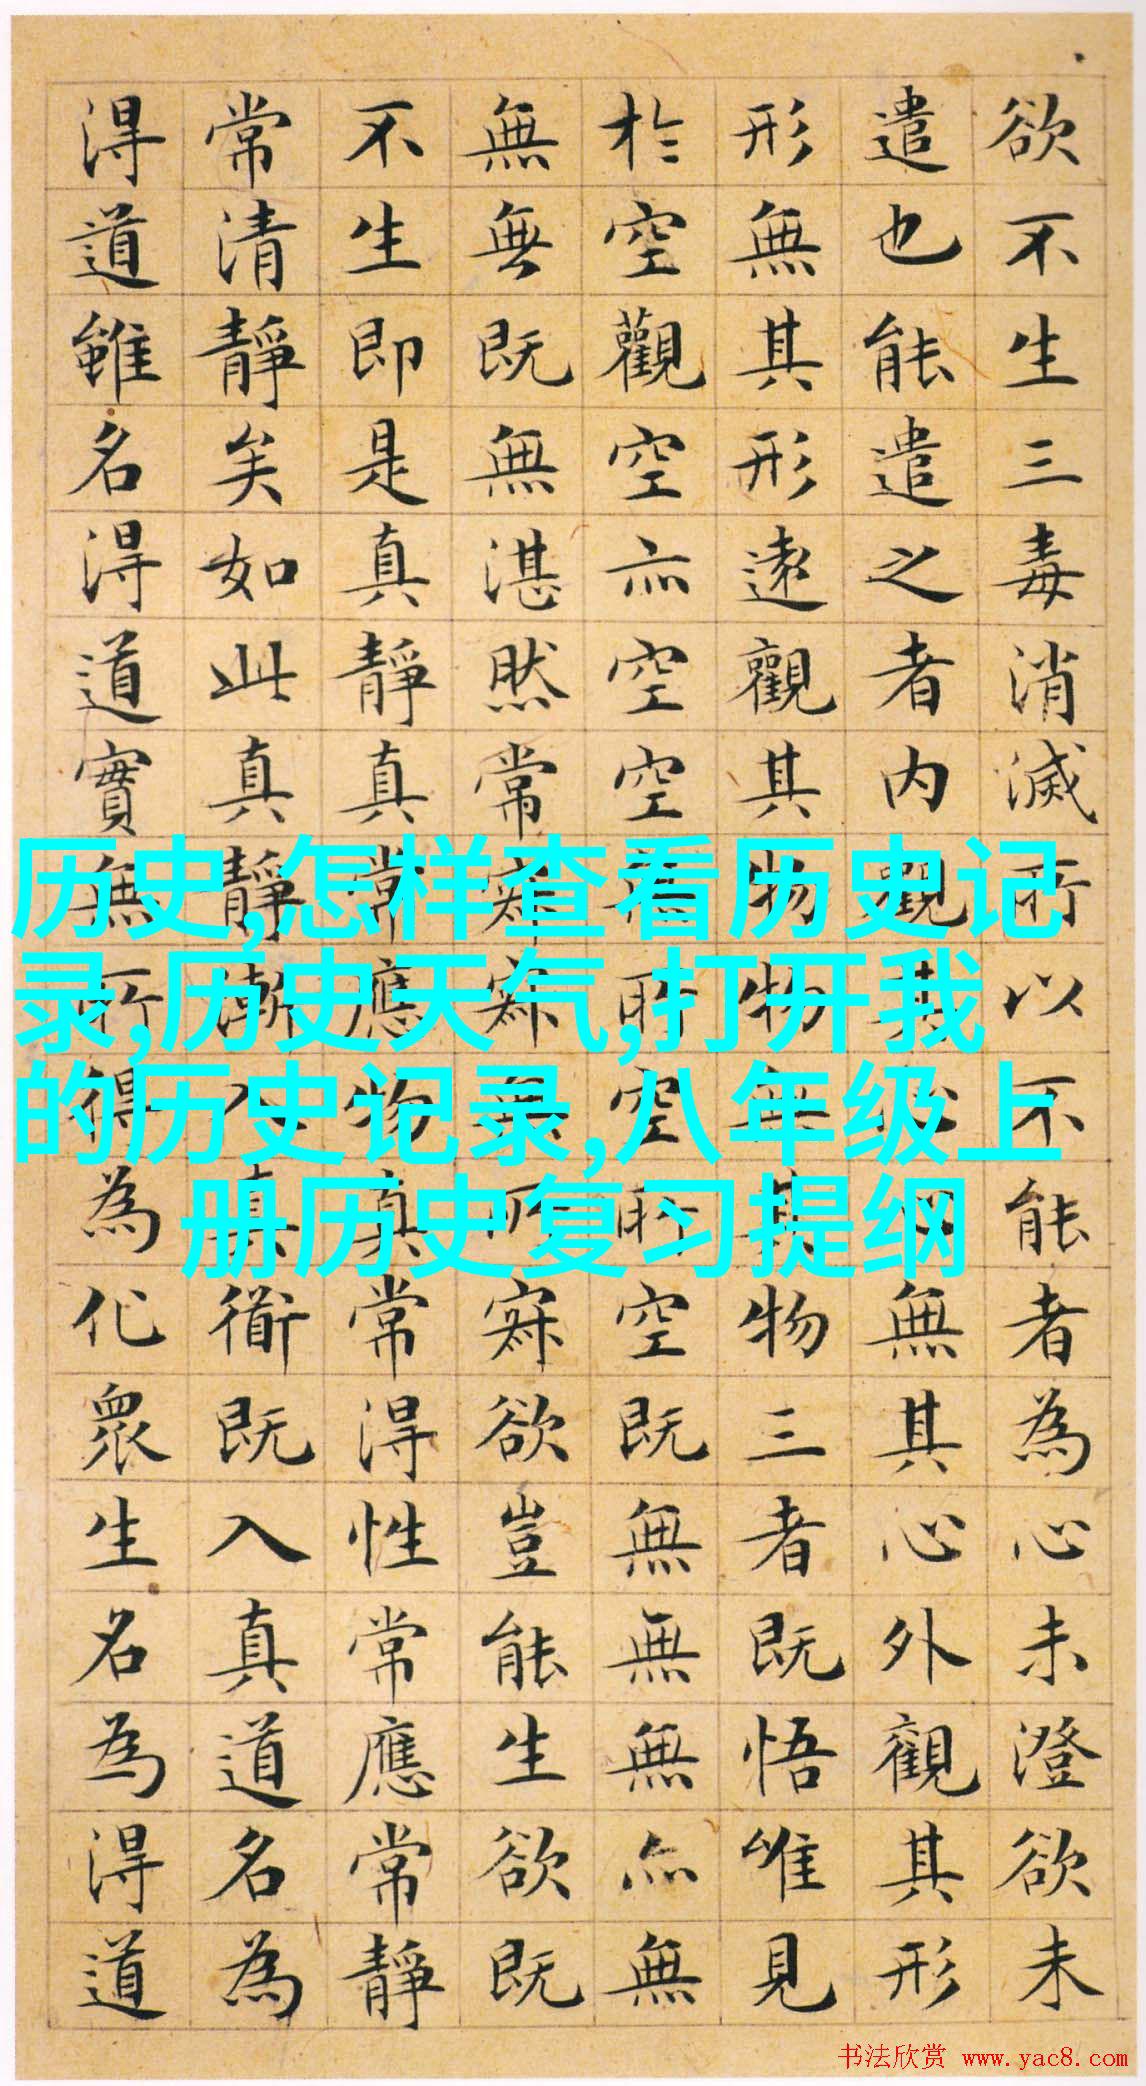 欲不生三毒消滅所以不能者為心未澄欲未
遣也能遣之者内觀其心心無其心外觀其形
形無其形遠觀其物物無其物三者既悟唯見
於空觀空亦空空無所空所空既無無無亦無
無無既無湛然常寂寂無所寂欲豈能生欲既
不生即是真靜真常應物真常得性常應常靜
常清靜矣如此真靜漸入真衜既入真道名為
得道雖名得道實無所得為化眾生名為得道
历史,怎样查看历史记
录,历史天气,打开我
的历史记录,八年级上
册历史复习提纲
书法欣赏 www.yac8.com